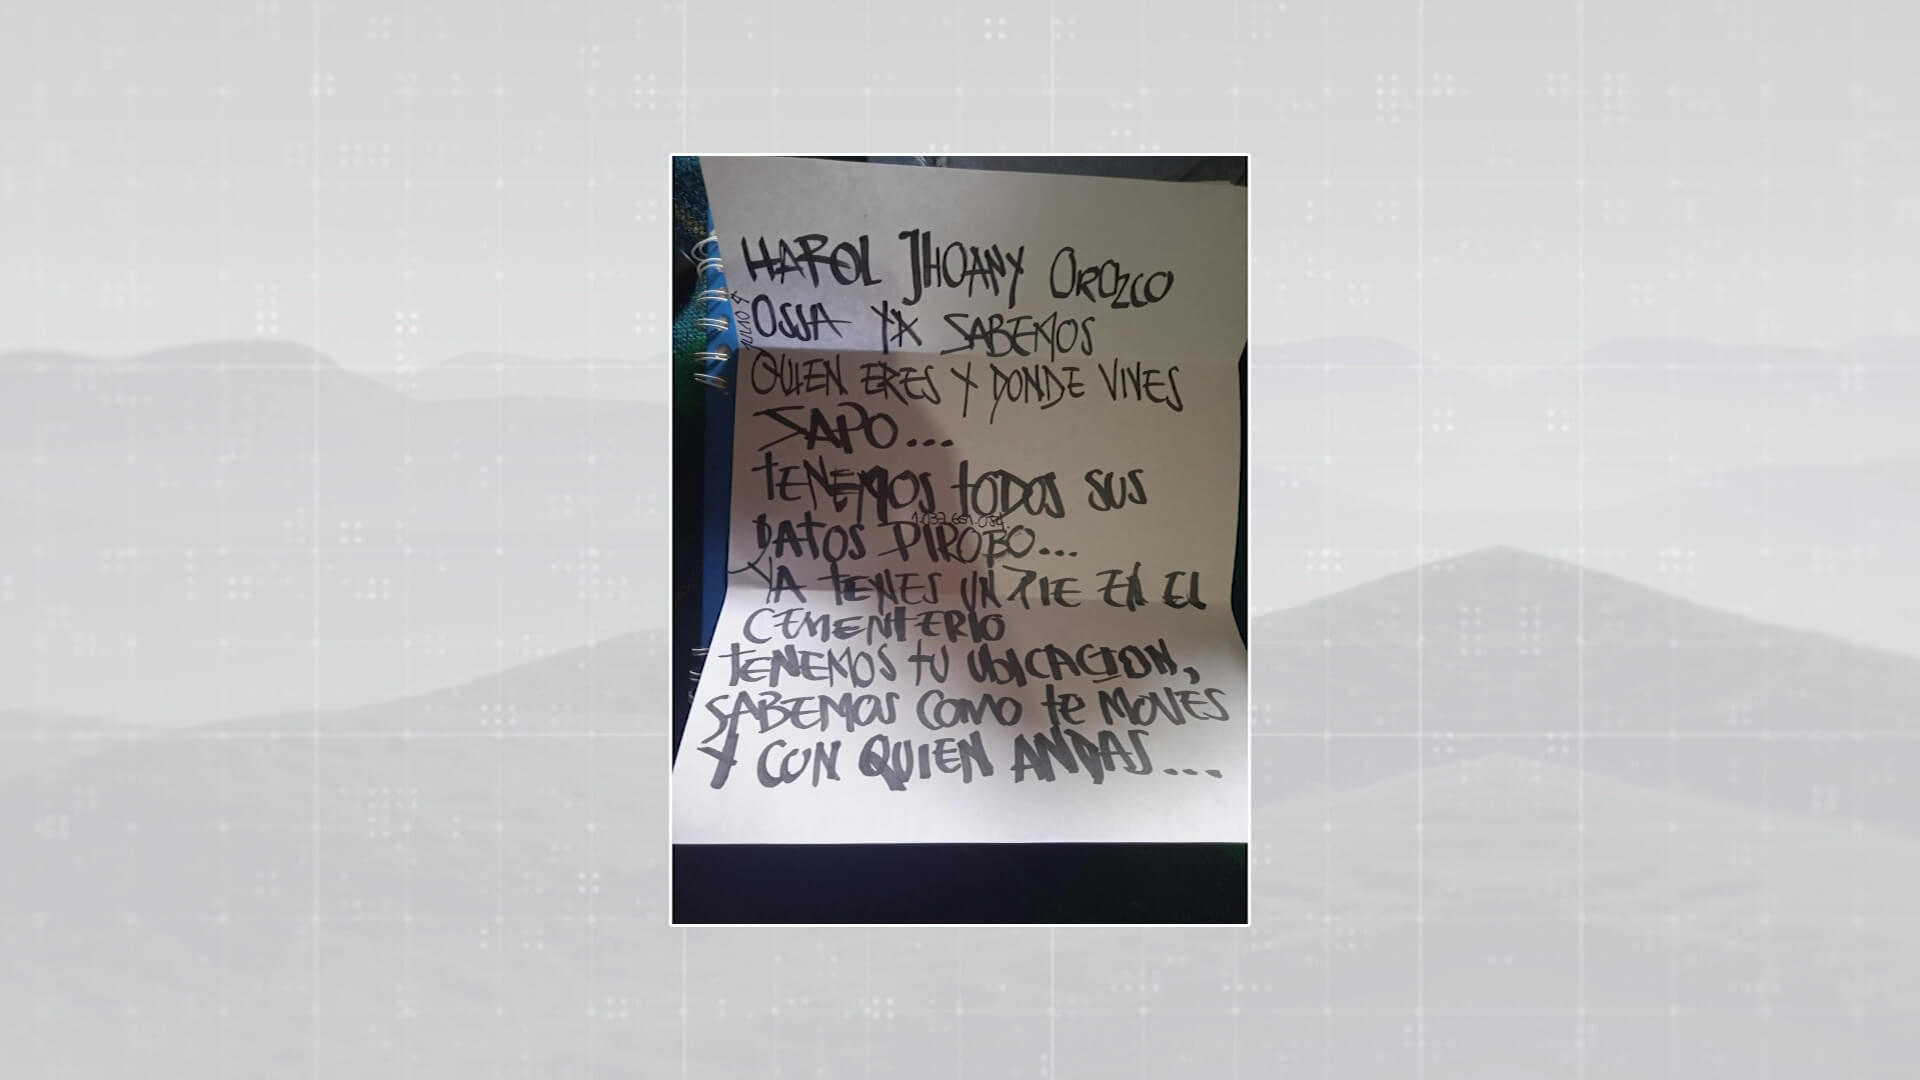 HAROL JHOANY OROZCO
OSSA YA SABEMOS
QUIEN ERES Y DONDE VIVES
SAPO...
TENEMOS TODOS SUS
DATOS PIROBO...
YA TENES UN PIE EN EL
CEMENTERIO
TENEMOS TU UBICACION,
SABEMOS COMO TE MOVES
Y CON QUIEN ANDAS...